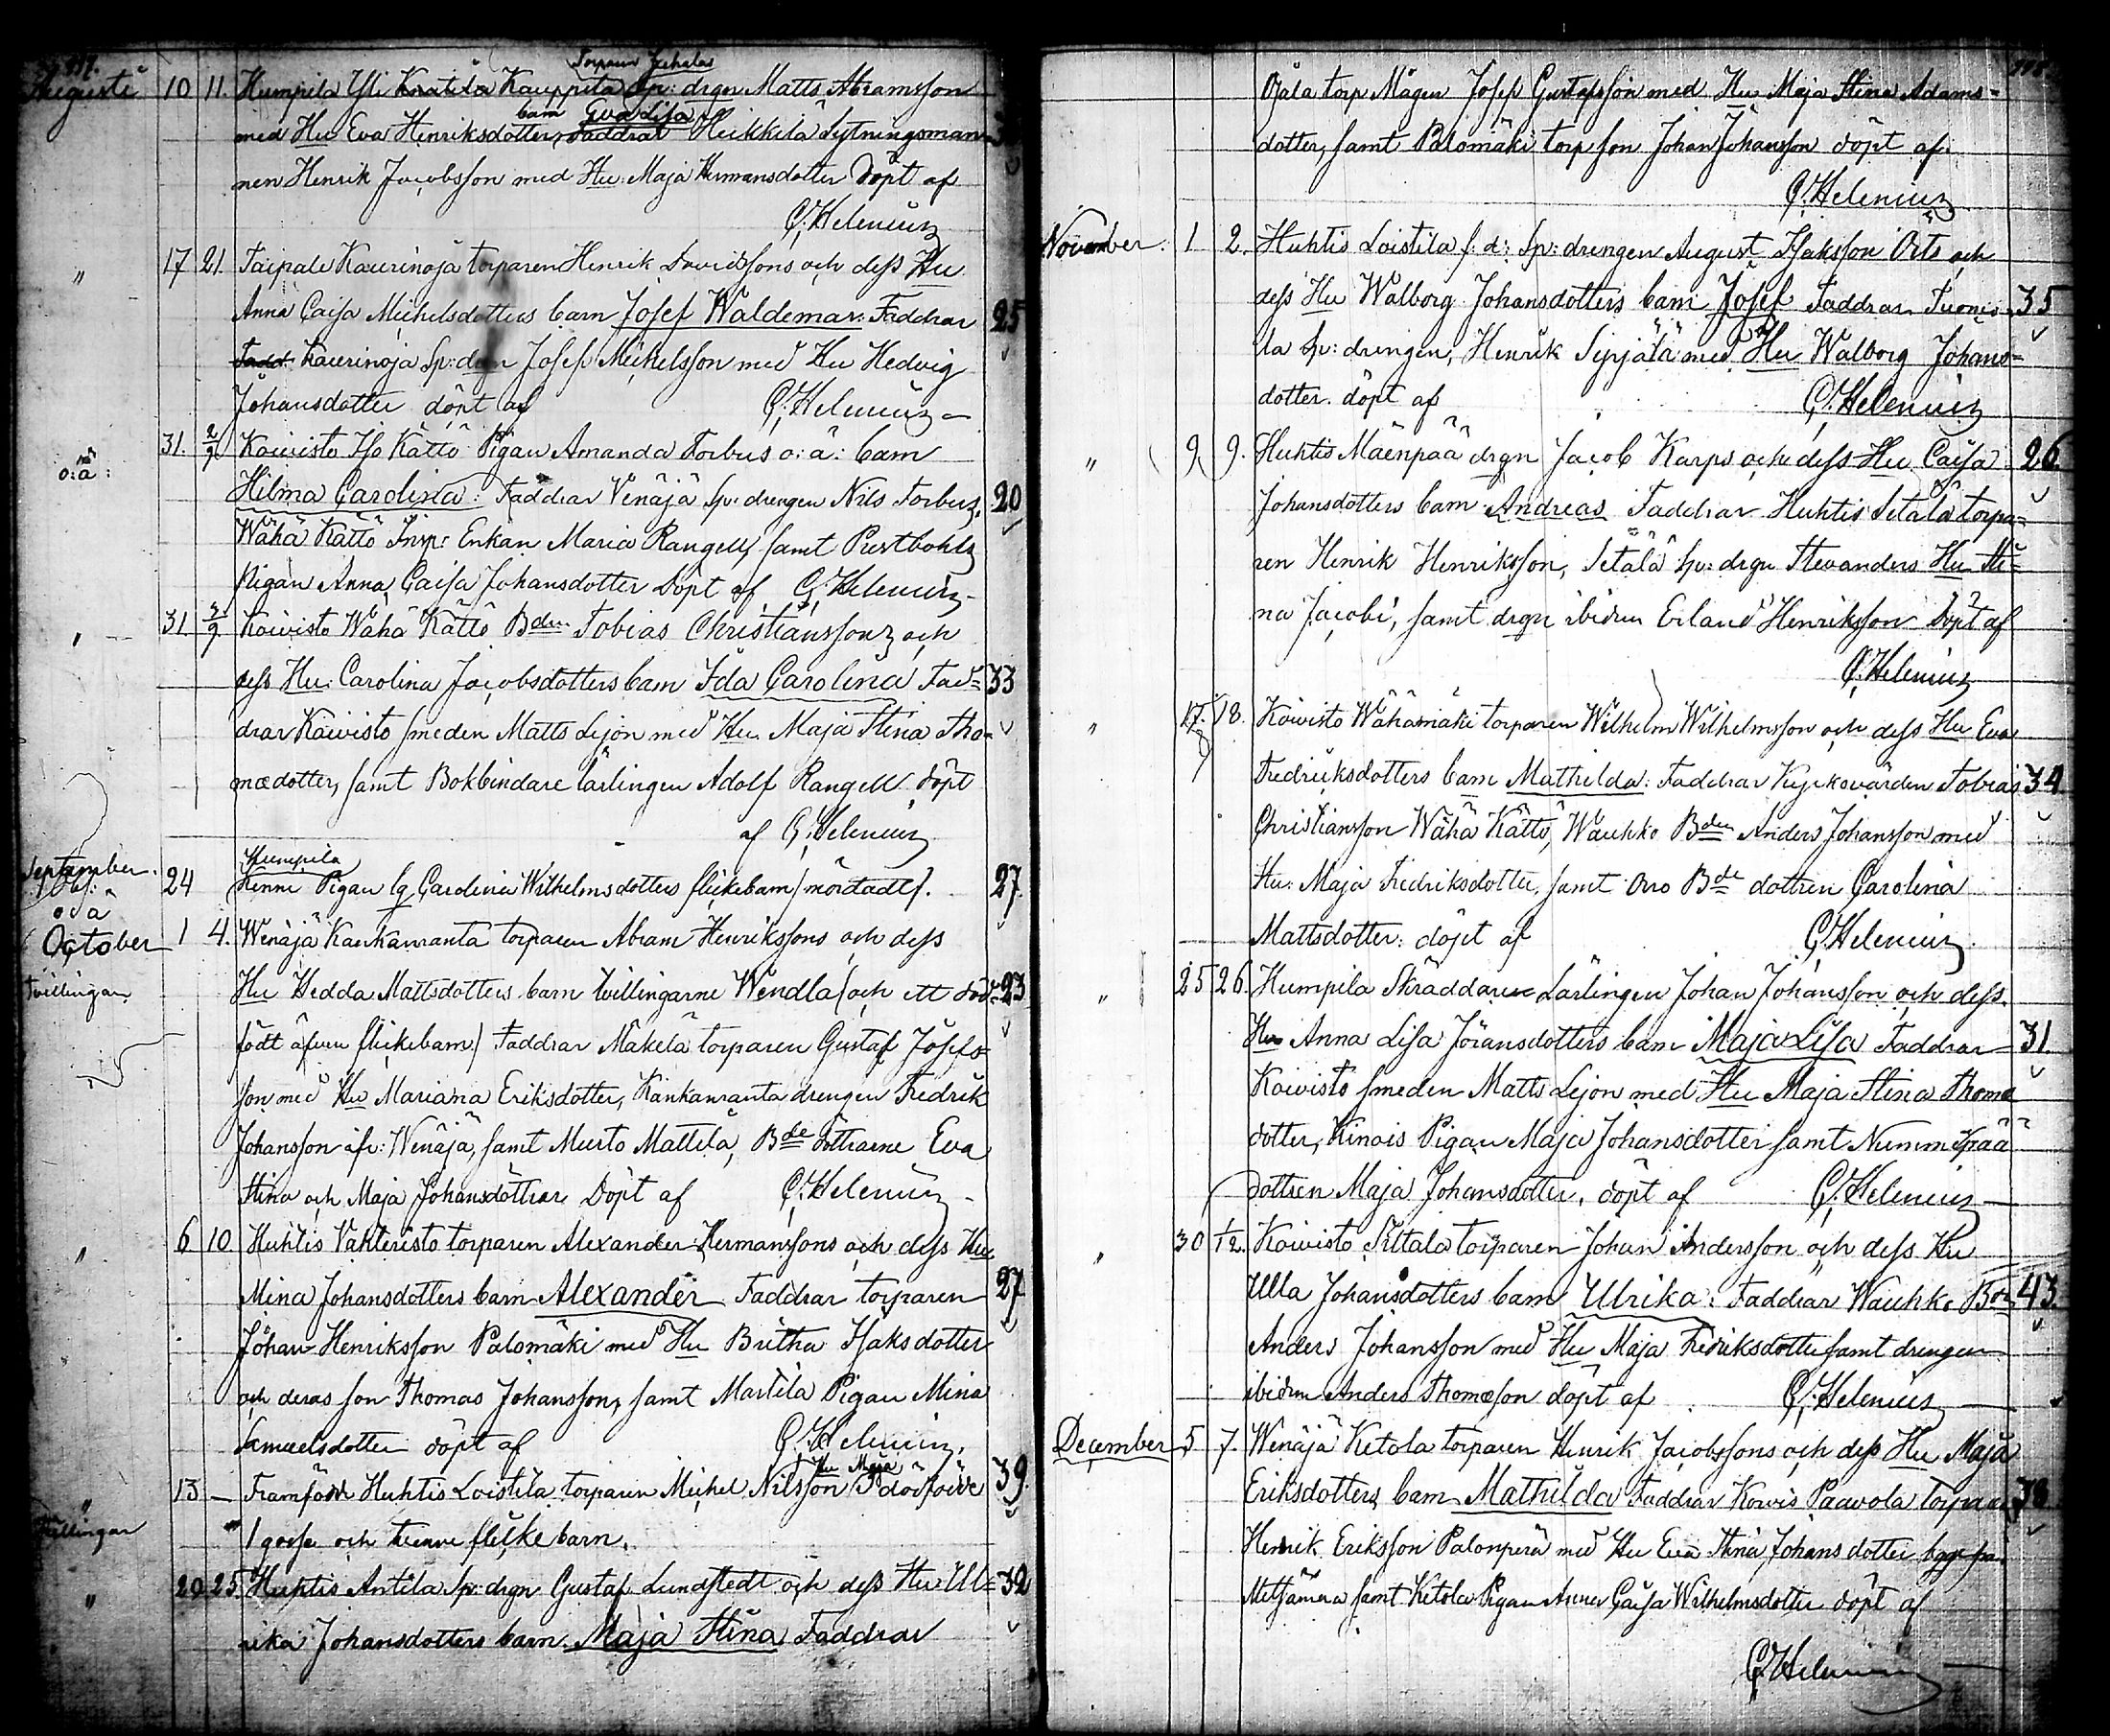 Torparen
Augusti 10 11. Humpila Yli Knatila Kauppila Sp: drgn Matts Abramsson
barn Eva Lisa
med Hu Eva Henriksdotter, Faddrar Heikkilä Lytningsman-
nen Henrik Jacobsson med Hu: Maja Hermansdotter Döpt af
G; Helenius
" 17 21. Taipale Kaurinoja torparen Henrik Davidssons och dess Hu
Anna Caisa Michelsdotters barn Josef Waldemar: Faddrar 25
Fadd Kaurinoja Sp: drgn Josef Michelsson med Hu Hedvig
Johansdotter döpt af G; Helenius
o:ä: 31. 2/9 Koivisto Iso Kättö Pigan Amanda Forbus o: ä: barn
Hilma Carolina: Faddrar Venäjä Sp: drengen Nils Forbus, 20
Wähä Kättö Insp: Enkan Maria Rangell, samt Prestbohls
Pigan Anna Caisa Johansdotter Döpt af G; Helenius
" 31 2/9 Koivisto Wähä Kättö Bden Tobias Christianssons och
dess Hu: Carolina Jacobsdotters barn Ida Carolina Fad= 33
drar Koivisto smeden Matts Lejon med Hu. Maja Stina Tho-
mædotter, samt Bokbindare lärlingen Adolf Rangell. döpt
af G; Helenius
Humpila
September. 24 Pigan Carolina Wilhelmsdotters flickebarn / mördadt /. 27.
o ä
October 1 4. Wenäjä Kankanranta torparen Abram Henrikssons och dess
Tvillingar Hu Hedda Mattsdotters barn tvillingarne Wendla (och ett död- 23
födt äfven flickebarn) Faddrar Mäkelä torparen Gustaf Josefs-
son med Hu Mariana Eriksdotter, Kankanranta drengen Fredrik
Johansson äfv: Wenäjä, samt Murto Mattila, Bde döttrarne Eva
Stina och Maja Johansdöttrar Döpt af G; Helenius
" 6 10. Huhtis Vahteristo torparen Alexander Hermanssons och dess Hu
Mina Johansdotters barn Alexander Faddrar torparen 27
Johan Henriksson Palomäki med Hu Britha Isaksdotter
och deras son Thomas Johansson, samt Martila Pigan Mina
Samuelsdotter döpt af G; Helenius.
Hu Maja
" 13 — Framföde Huhtis Loistila torparen Michel Nilsson 39.
1 gosse och tvenne flickebarn.
" 20 25. Huhtis Antila Sp: drgn Gustaf Lundstedt och dess Hu: Ul= 32
rika Johansdotters barn Maja Stina Faddrar
Ojala torp Mågen Josef Gustafsson med Hu Maja Stina Adams-
dotter, samt Palomäki torp son Johan Johansson döpt af
G; Helenius
November. 1 2. Huhtis Loistila f. d: Sp: drengen August Isaksson Orts och
dess Hu Walborg Johansdotters barn Josef Faddrar Tuomi- 35
la Sp: drengen, Henrik Syrjälä med Hu Walborg Johans-
dotter. döpt af G; Helenius
" 9 9. Huhtis Mäenpää drgn Jacob Karps och dess Hu Caisa 26
Johansdotters barn Andreas Faddrar Huhtis Setälä torpa=
ren Henrik Henriksson, Setälä Sp: drgn Stevanders Hu Sti=
na Jacobi, samt drgn ibidem Erland Henriksson Döpt af
G; Helenius
" 17. 18. Koivisto Wähämäki torparen Wilhelm Wilhelmsson och dess Hu Eva
Fredriksdotters barn Mathilda: Faddrar Kyrkovärden Tobias 34
Christiansson Wähä Kättö, Wauhko Bden Anders Johansson med
Hu: Maja Fredriksdotter, samt Orro Bde dottren Carolina
Mattsdotter: döpt af G; Helenius
" 25 26. Humpila Skräddare Lärlingen Johan Johansson och dess
Hu Anna Lisa Jöransdotters barn Maja Lisa Faddrar 31.
Koivisto smeden Matts Lejon med Hu Maja Stina Thomæ
dotter, Kinois Pigan Maja Johansdotter samt Nummenpää
dottren Maja Johansdotter, döpt af G; Helenius
" 30 1/12. Koivisto torparen Johan Andersson och dess Hu
Ulla Johansdotters barn Ulrika: Faddrar Wauhko Bdn 43.
Anders Johansson med Hu Maja Fredriksdotter samt drengen
ibidem Anders Thomæson döpt af G; Helenius
December 5 7. Wenäjä Ketola torparen Henrik Jacobssons och dess Hu Maja
Eriksdotters barn Mathilda Faddrar Koivis Paavola torparen 38
Henrik Eriksson Palonperä med Hu Eva Stina Johansdotter
samt Ketola Pigan Anna Caisa Wilhelmsdotter döpt af
G; Helenius